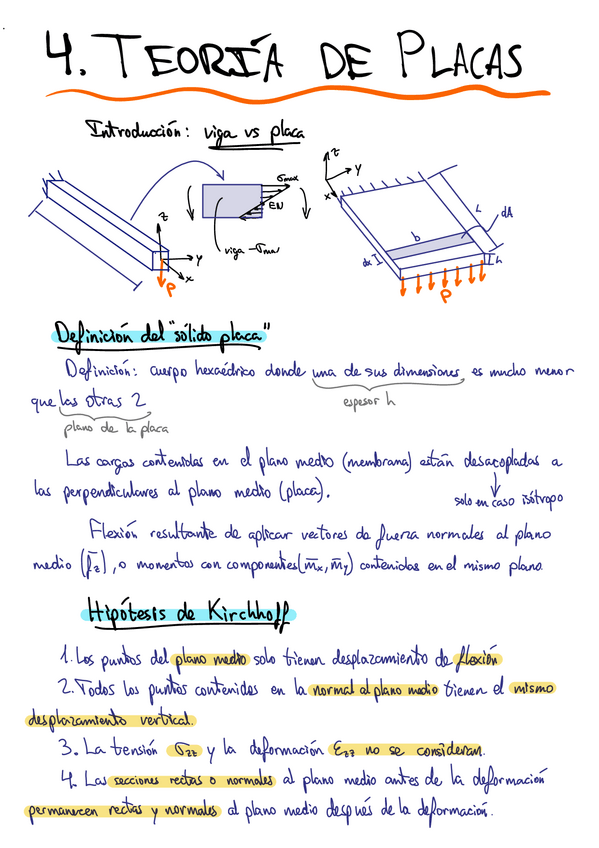 4. TEORÍA DE PLACAS
Introducción: viga vs placa
z
y
x
P
σmax
EN
viga → σmax
z
y
x
L
dA
b
dx
h
P
Definición del "sólido placa"
Definición: cuerpo hexaédrico donde una de sus dimensiones es mucho menor
espesor h
que las otras 2
plano de la placa
Las cargas contenidas en el plano medio (membrana) están desacopladas a
las perpendiculares al plano medio (placa).
solo en caso isótropo
Flexión resultante de aplicar vectores de fuerza normales al plano
medio (f̄z), o momentos con componentes (m̄x, m̄y) contenidas en el mismo plano.
Hipótesis de Kirchhoff
1. Los puntos del plano medio solo tienen desplazamiento de flexión
2. Todos los puntos contenidos en la normal al plano medio tienen el mismo
desplazamiento vertical.
3. La tensión σzz y la deformación εzz no se consideran.
4. Las secciones rectas o normales al plano medio antes de la deformación
permanecen rectas y normales al plano medio después de la deformación.